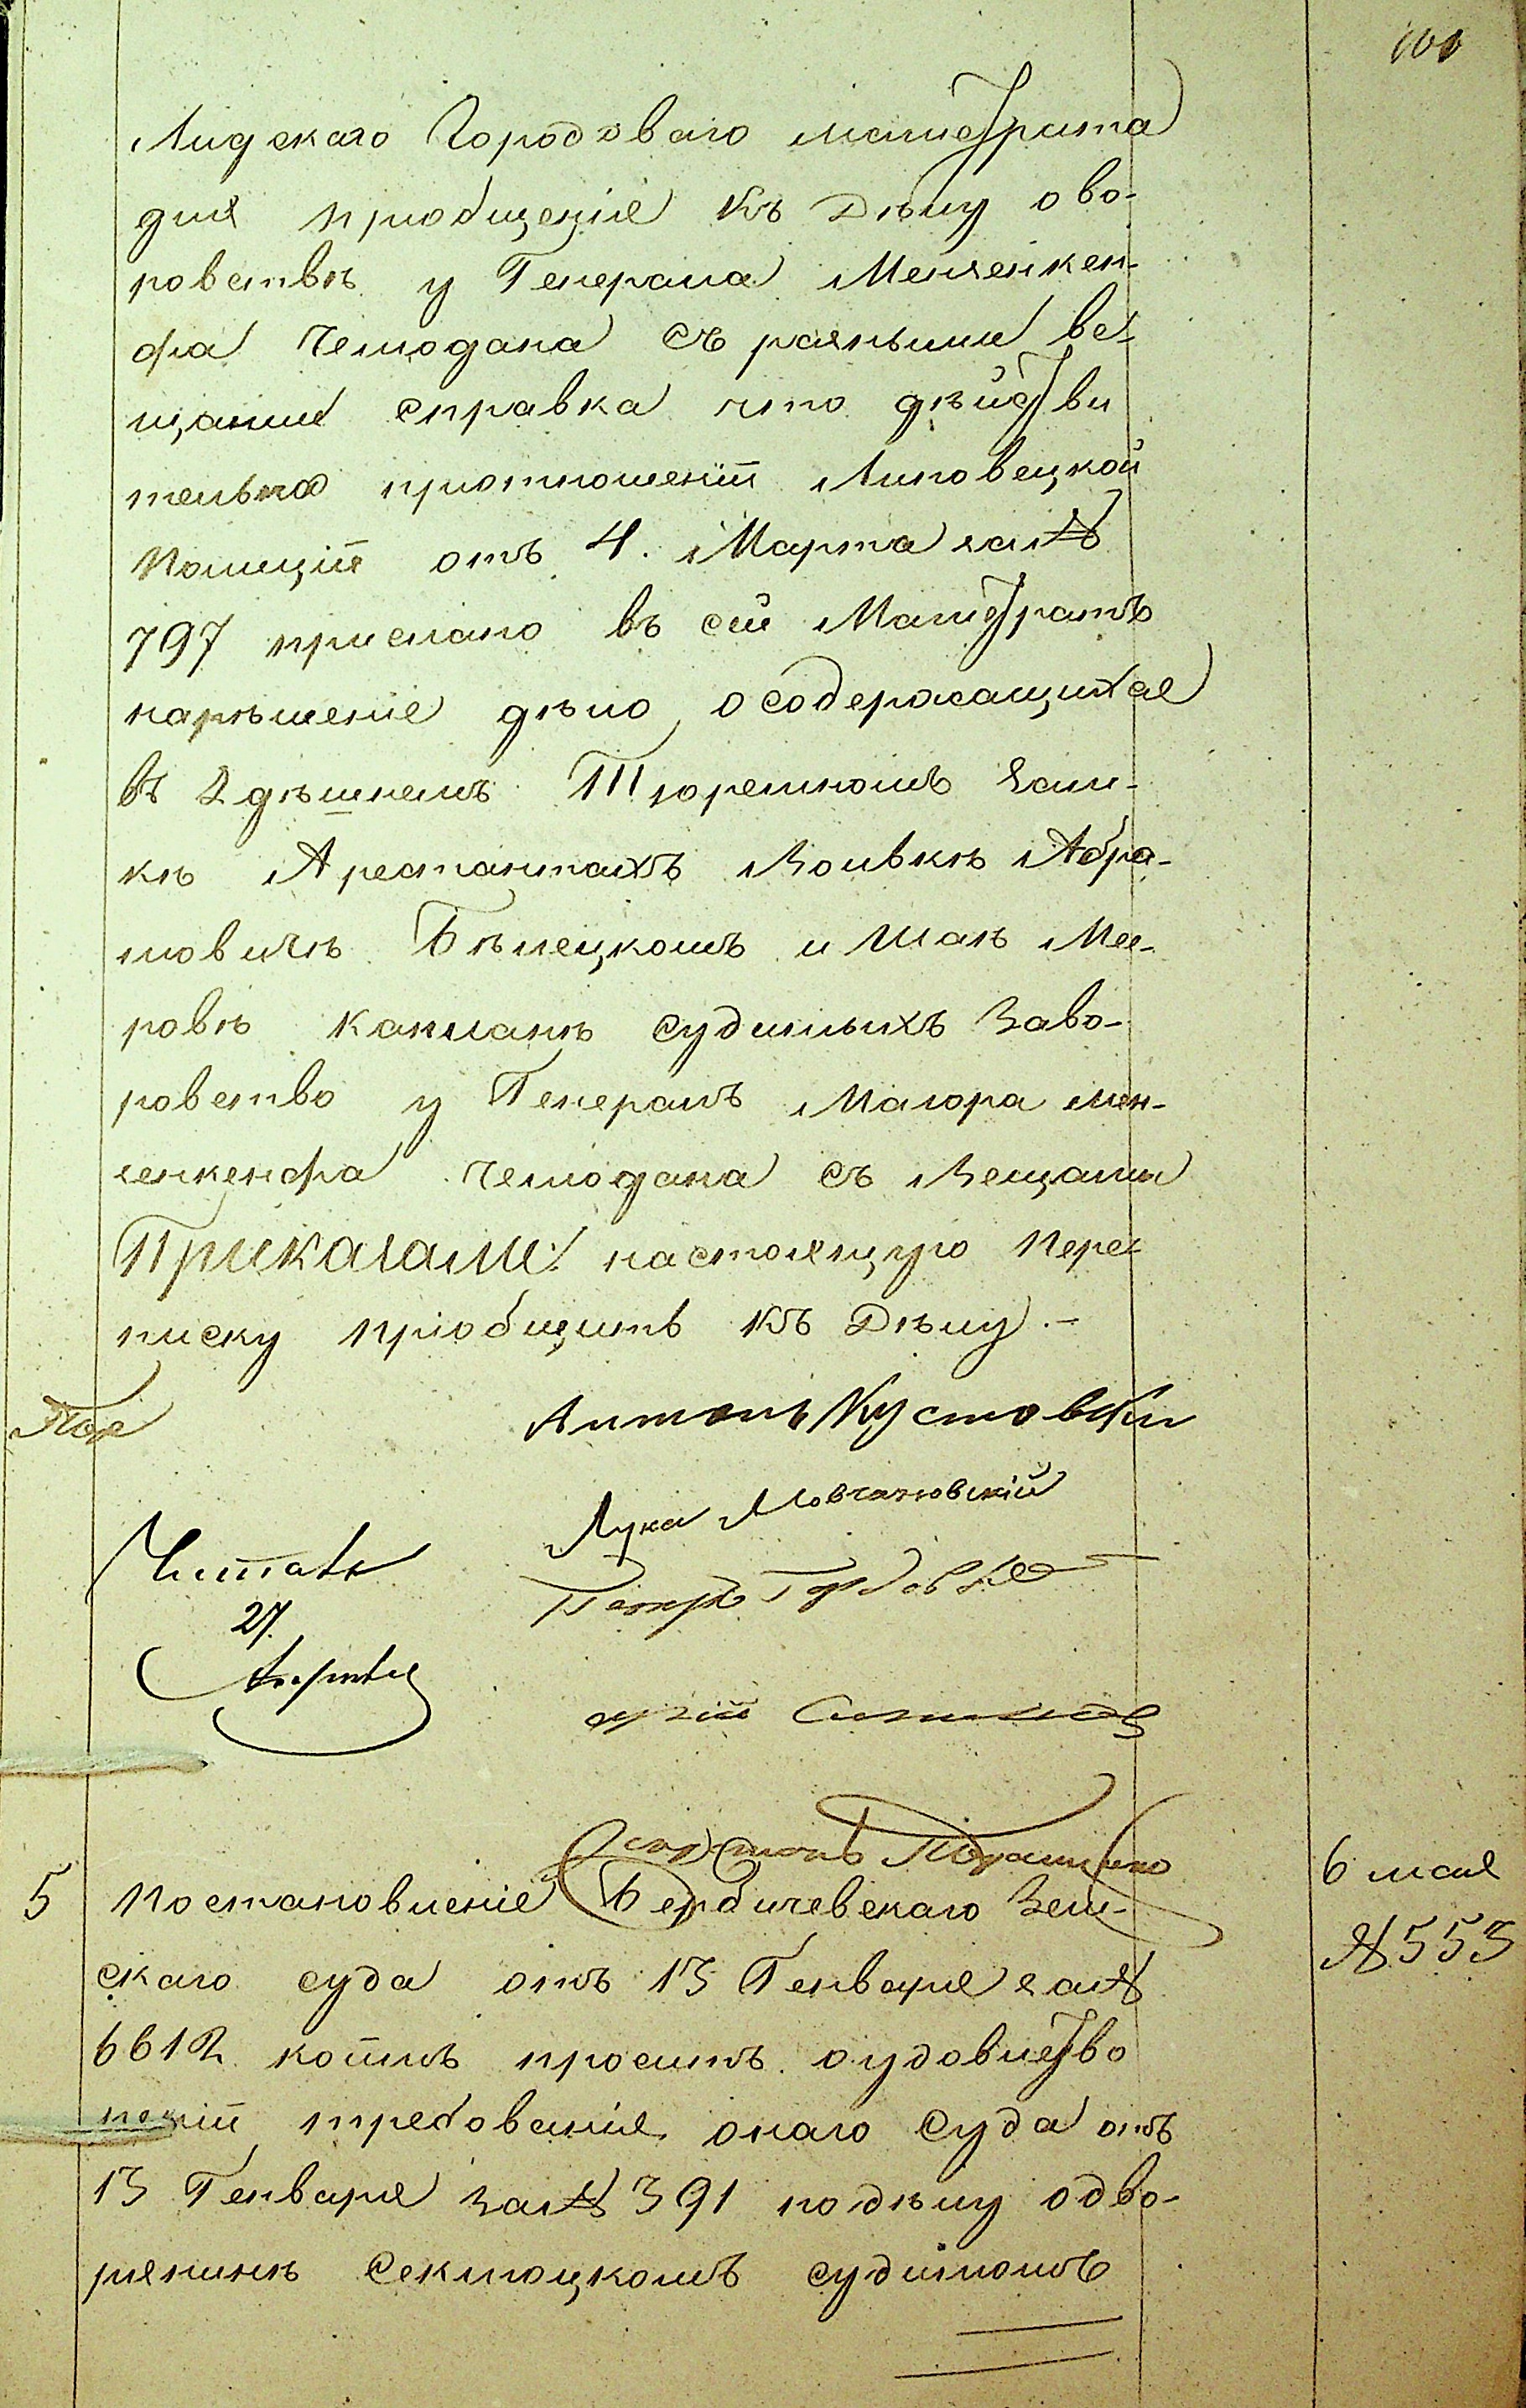 100
Лидскаго Городоваго магистрата
для приобщенія къ Дѣлу ово-
ровствѣ у Генерала Менгенкен-
фа Чемодана съ разными ве-
щами справка что дѣйстви
тельно приотношеніи Липовецкой
Полиціи отъ 4. Марта за №
797 прислано въ сей Магистратъ
нарѣшеніе дѣло осодержащихся
въ Здѣшнемъ Тюремномъ Зам-
кѣ Арестантахъ Волвкѣ Абра-
мовичѣ Бѣлецкомъ и Шаѣ Мее-
ровѣ Капланѣ судимыхъ Заво-
ровство у Генералъ Маіора мен-
генкенфа чемодана съ Вещами
Приказали: настоящую Пере-
писку пріобщить къ Дѣлу. -
Антонъ Кустовски
Лука Мовчановскій
Петръ
Читалъ
27.
6 мая
5 Постановленіе Бердичевскаго Зем-
№ 555
скаго суда отъ 13 Генваря за №
6612 коимъ проситъ оудовлетво
реніи требованія онаго Суда отъ
13 Генваря за № 391 подѣлу одво-
рянинѣ Секлюцкомъ судимомъ